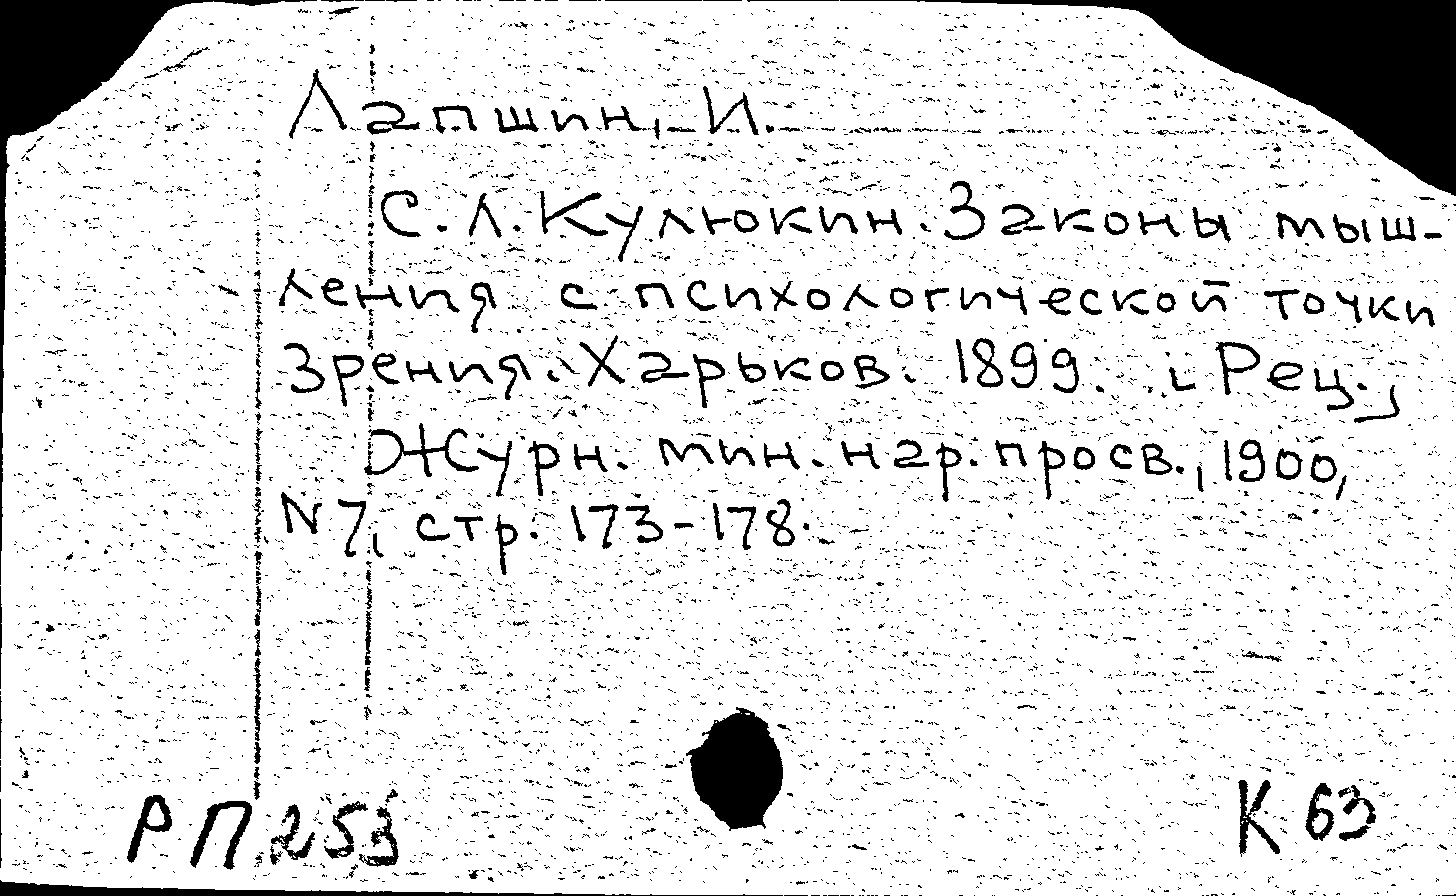 Лапшин, И.
С. Л. Кулюкин. Законы мыш-
ления с психологической точки
зрения. Харьков. 1899. [Рец.]
Журн. мин. нар. просв., 1900,
N 7, стр. 173-178.
РП 253
К 63